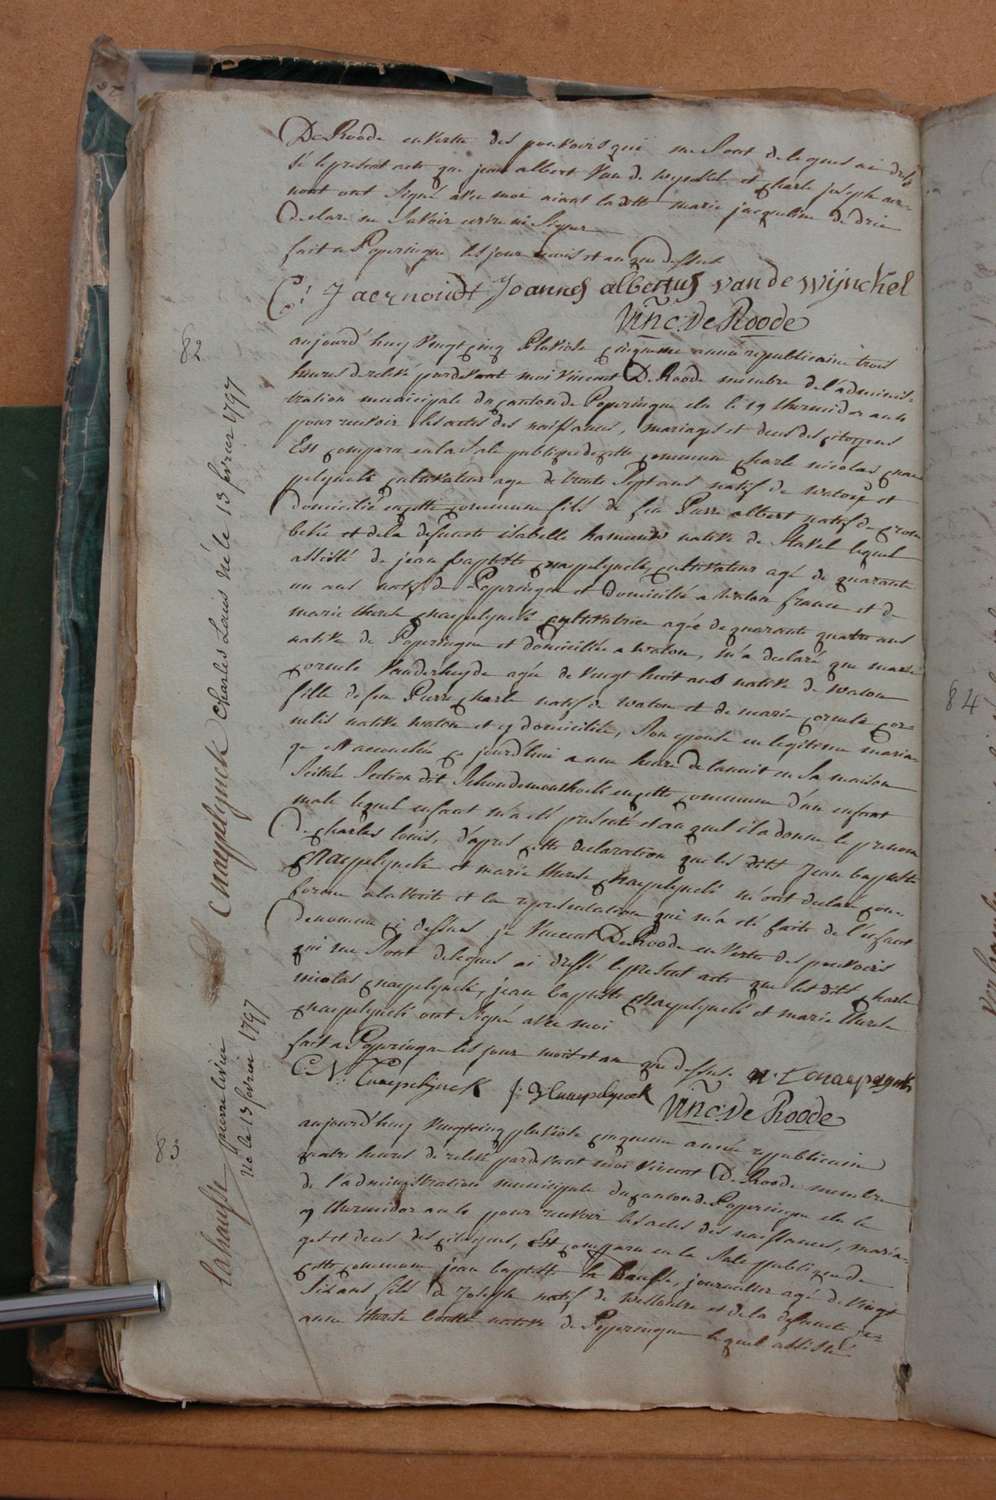 De Roode en vertu des pouvoirs qui me sont delegues ai dres-
sé le present acte que jean albert Van de wynckel et charle joseph aer-
nout ont signé avec moi aiant laditte marie jacqueline de drie
declaré ne savoir ecrire ni signer
fait a Poperingue les jour mois et an que dessus
C: J aernoudt Joannes albertus van de wijnckel
Vinc: De Roode
82
aujourd'huy vingt cinq Pluviose cinquieme année republicaine trois
heures de relevé pardevant moi Vincent De Roode membre de l'adminis-
tration municipale du canton de Poperingue elu le 19 thermidor an 4
pour recevoir les actes des naissances, mariages et deces des citoyens
Est comparu en la sale publique de cette commune charle nicolas cnae-
pelynck cultivateur agé de trente sept ans natif de watou et
domicilié en cette commune fils de feu Pierre albert natif de crom-
beke et de la defuncte isabelle native de Stavel lequel
assisté de jean baptiste cnaepelynck cultivateur agé de quarante
un ans natif de Poperingue et domicilié a watou france et de
marie therese cnaepelynck cultivatrice agée de quarante quatre ans
native de Poperingue et domiciliée a watou, m'a declaré que marie
cornele Vanderheyde agée de vingt huit ans native de watou
fille de feu Pierre charle natif de watou et de marie cornele cor-
nelis native watou et y domiciliée, son epouse en legitime maria-
ge est accouchée ce jourd'hui a une heure de la nuit en sa maison
scituée section dit Schoudemonthoek en cette commune d'un enfant
male lequel enfant m'a eté presenté et au quel il a donné le prenom
de charles louis, d'apres cette declaration que les dits jean baptiste
cnaepelynck et marie therese cnaepelynck m'ont declaré con-
forme a la verité et la representation qui m'a eté faite de l'enfant
denommé ci dessus je Vincent De Roode en vertu des pouvoirs
qui me sont delegues ai dressé le present acte que les dits charle
nicolas cnaepelynck, jean baptiste cnaepelynck et marie therese
cnaepelynck ont signé avec moi
fait a Poperingue les jour mois et an que dessus
C: N: Cnaepelynck J: B Cnaepelynck m: T cnaepelynck
Vinc: De Roode
Cnaepelynck Charles Louis né le 13 février 1797
83
aujourd'huy vingt cinq pluviose cinquieme année republicaine
quatre heures de relevé pardevant moi Vincent De Roode membre
de l'administration municipale du canton de Poperingue elu le
9 thermidor an 4 pour recevoir les actes des naissances, maria-
ges et deces des citoyens, Est comparu en la sale publique de
cette commune jean baptiste la hausse, journallier agé de vingt
six ans fils de Joseph natif de et de la defuncte
anne therese native de Poperingue lequel assisté
Lahausse pierre livin
né le 13 février 1797
84